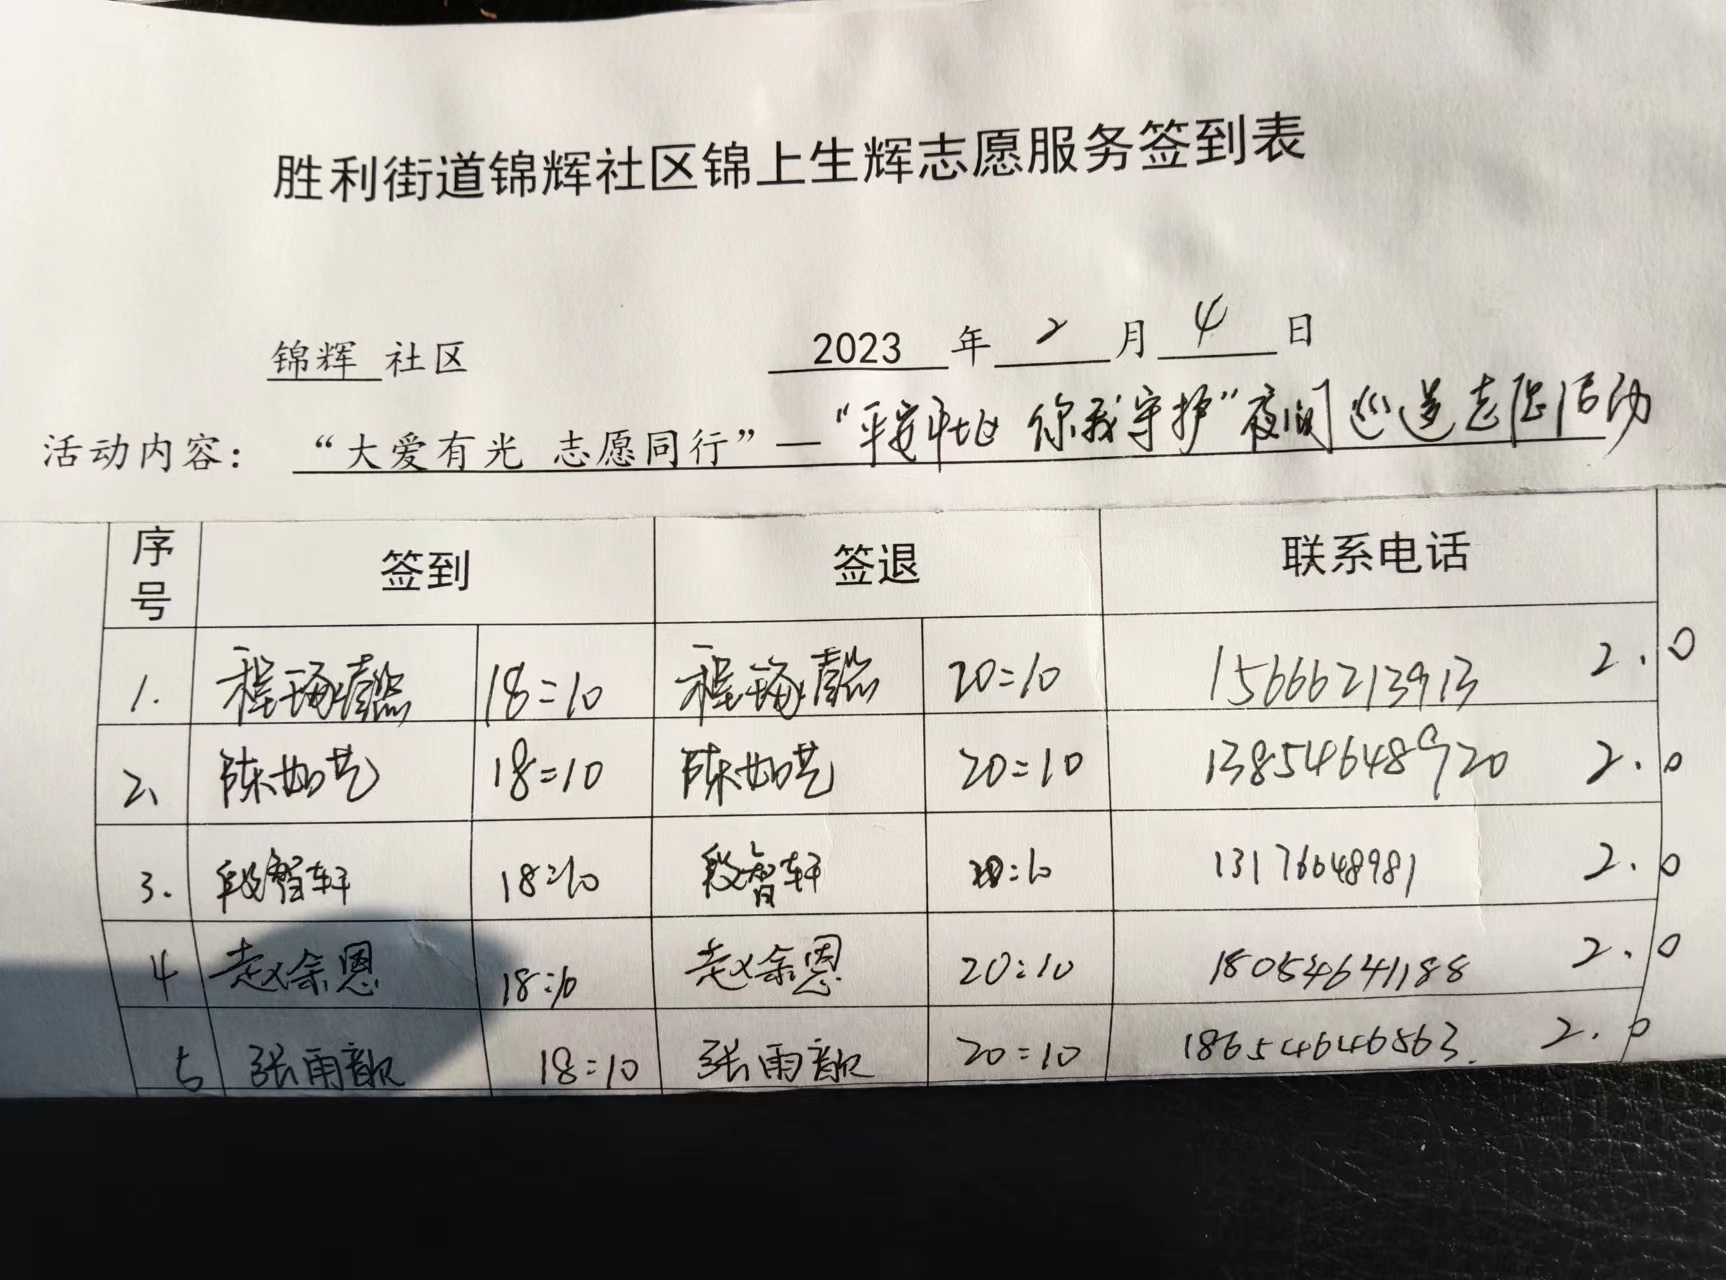 胜利街道锦辉社区锦上生辉志愿服务签到表
锦辉 社区 2023 年 2 月 4 日
活动内容：“大爱有光 志愿同行”—“平安 你我守护”夜间巡逻志愿活动
序号 签到 签退 联系电话
1. 程 18:10 程 20:10 15666213913 2.0
2、 陈如艺 18:10 陈如艺 20:10 13854648920 2.0
3. 段智轩 18:10 段智轩 20:10 13176648981 2.0
4 赵余恩 18:10 赵余恩 20:10 18054641188 2.0
5 张雨歆 18:10 张雨歆 20:10 18654646863. 2.0